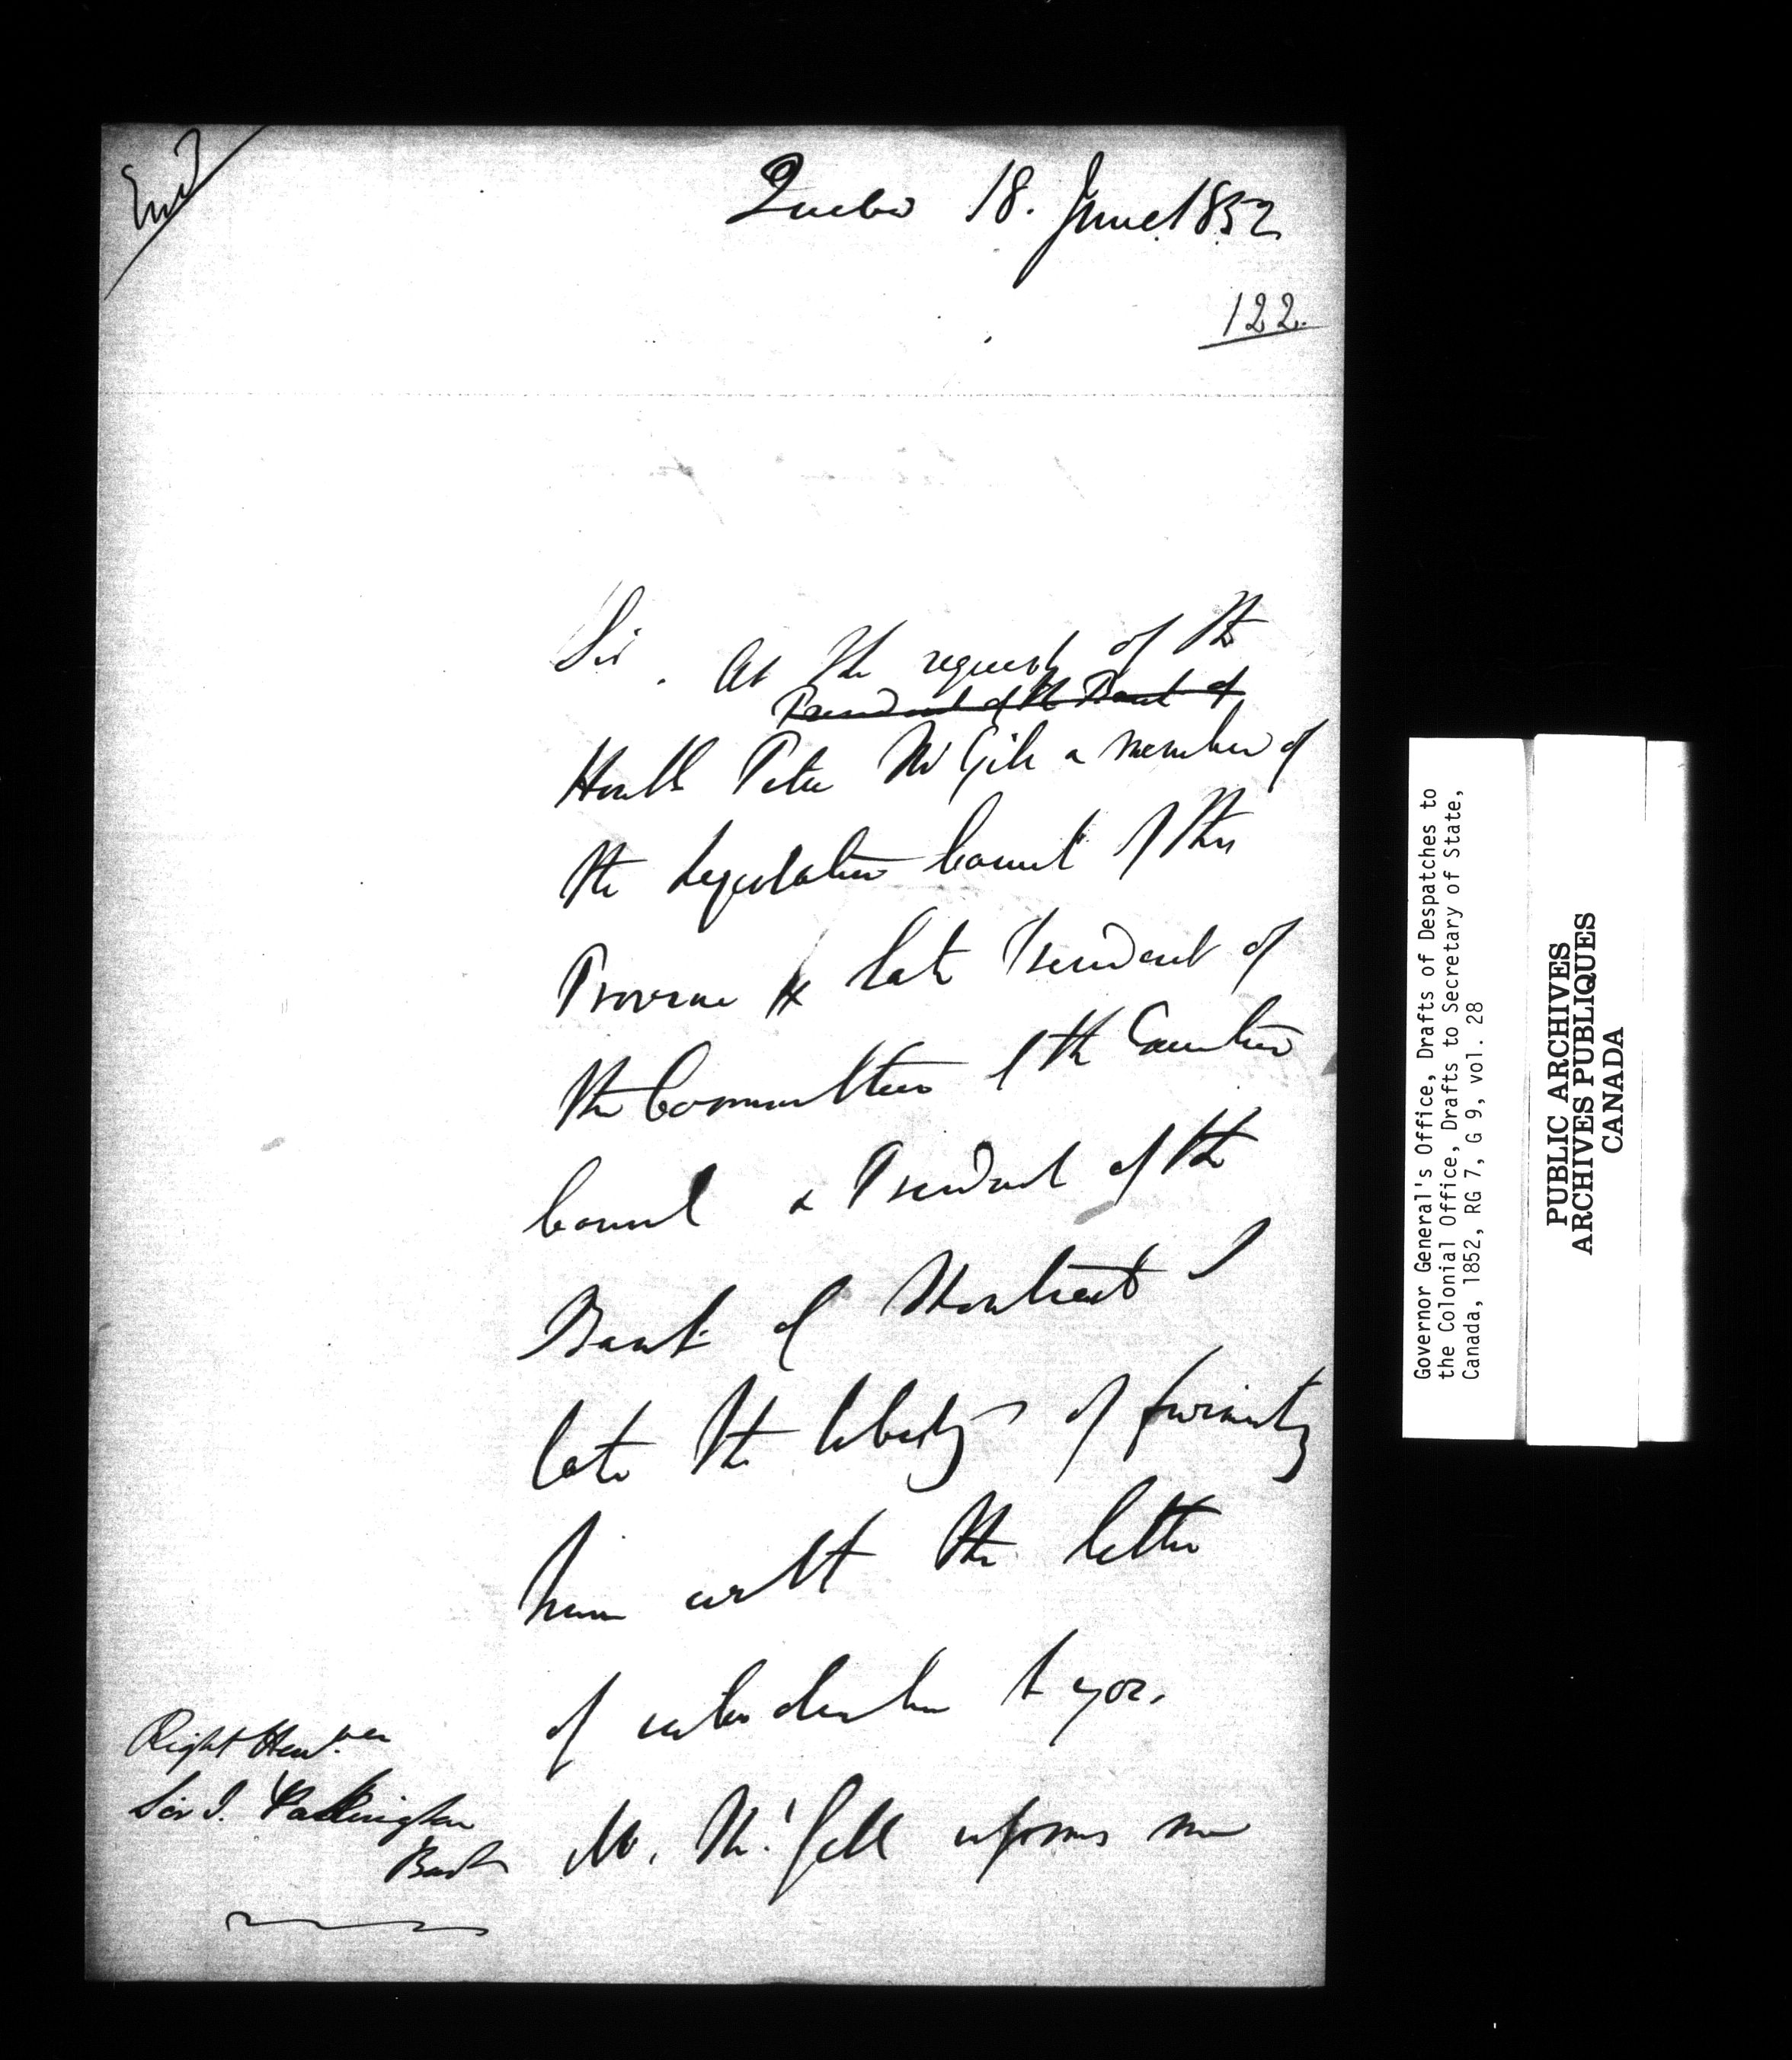 Quebec 18. June 1852
122.
Sir. At the request of the
President of the Bank of
Honble Peter McGill a member of
the Legislative Council of this
Province & late President of
the Committees of the Executive
Council & President of the
Bank of Montreal I
take the liberty of furnishing
him with the letter
of introduction to you.
Mr. McGill informs me
Right Hon.
Sir J. Pakington
Bart
Governor General's Office, Drafts of Despatches to
the Colonial Office, Drafts to Secretary of State,
Canada, 1852, RG 7, G 9, vol. 28
PUBLIC ARCHIVES
ARCHIVES PUBLIQUES
CANADA